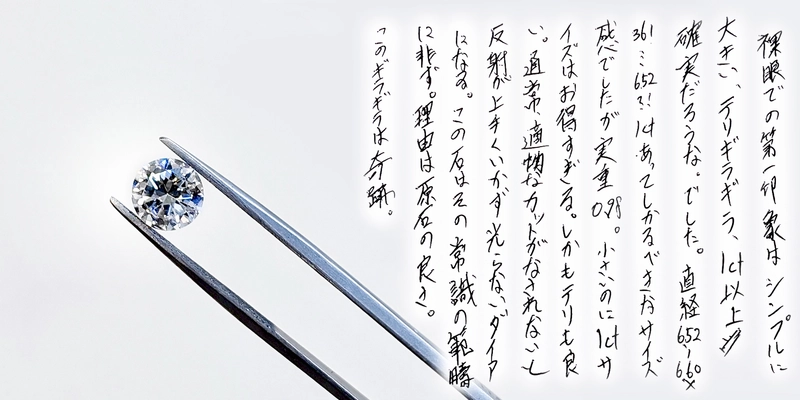 裸眼での第一印象はシンプルに
大きい、テリギラギラ、1ct以上が
確実だろうな。でした。直径6.52〜6.60×
3.61…6.52?!1ctあってしかるべきなサイズ
感でしたが実重0.98。小さいのに1ctサ
イズはお得すぎる。しかもテリも良
い。通常、適切なカットがなされないと
反射が上手くいかず光らないダイヤ
になる。この石はその常識の範疇
に非ず。理由は原石の良さ。
このギラギラは奇跡。